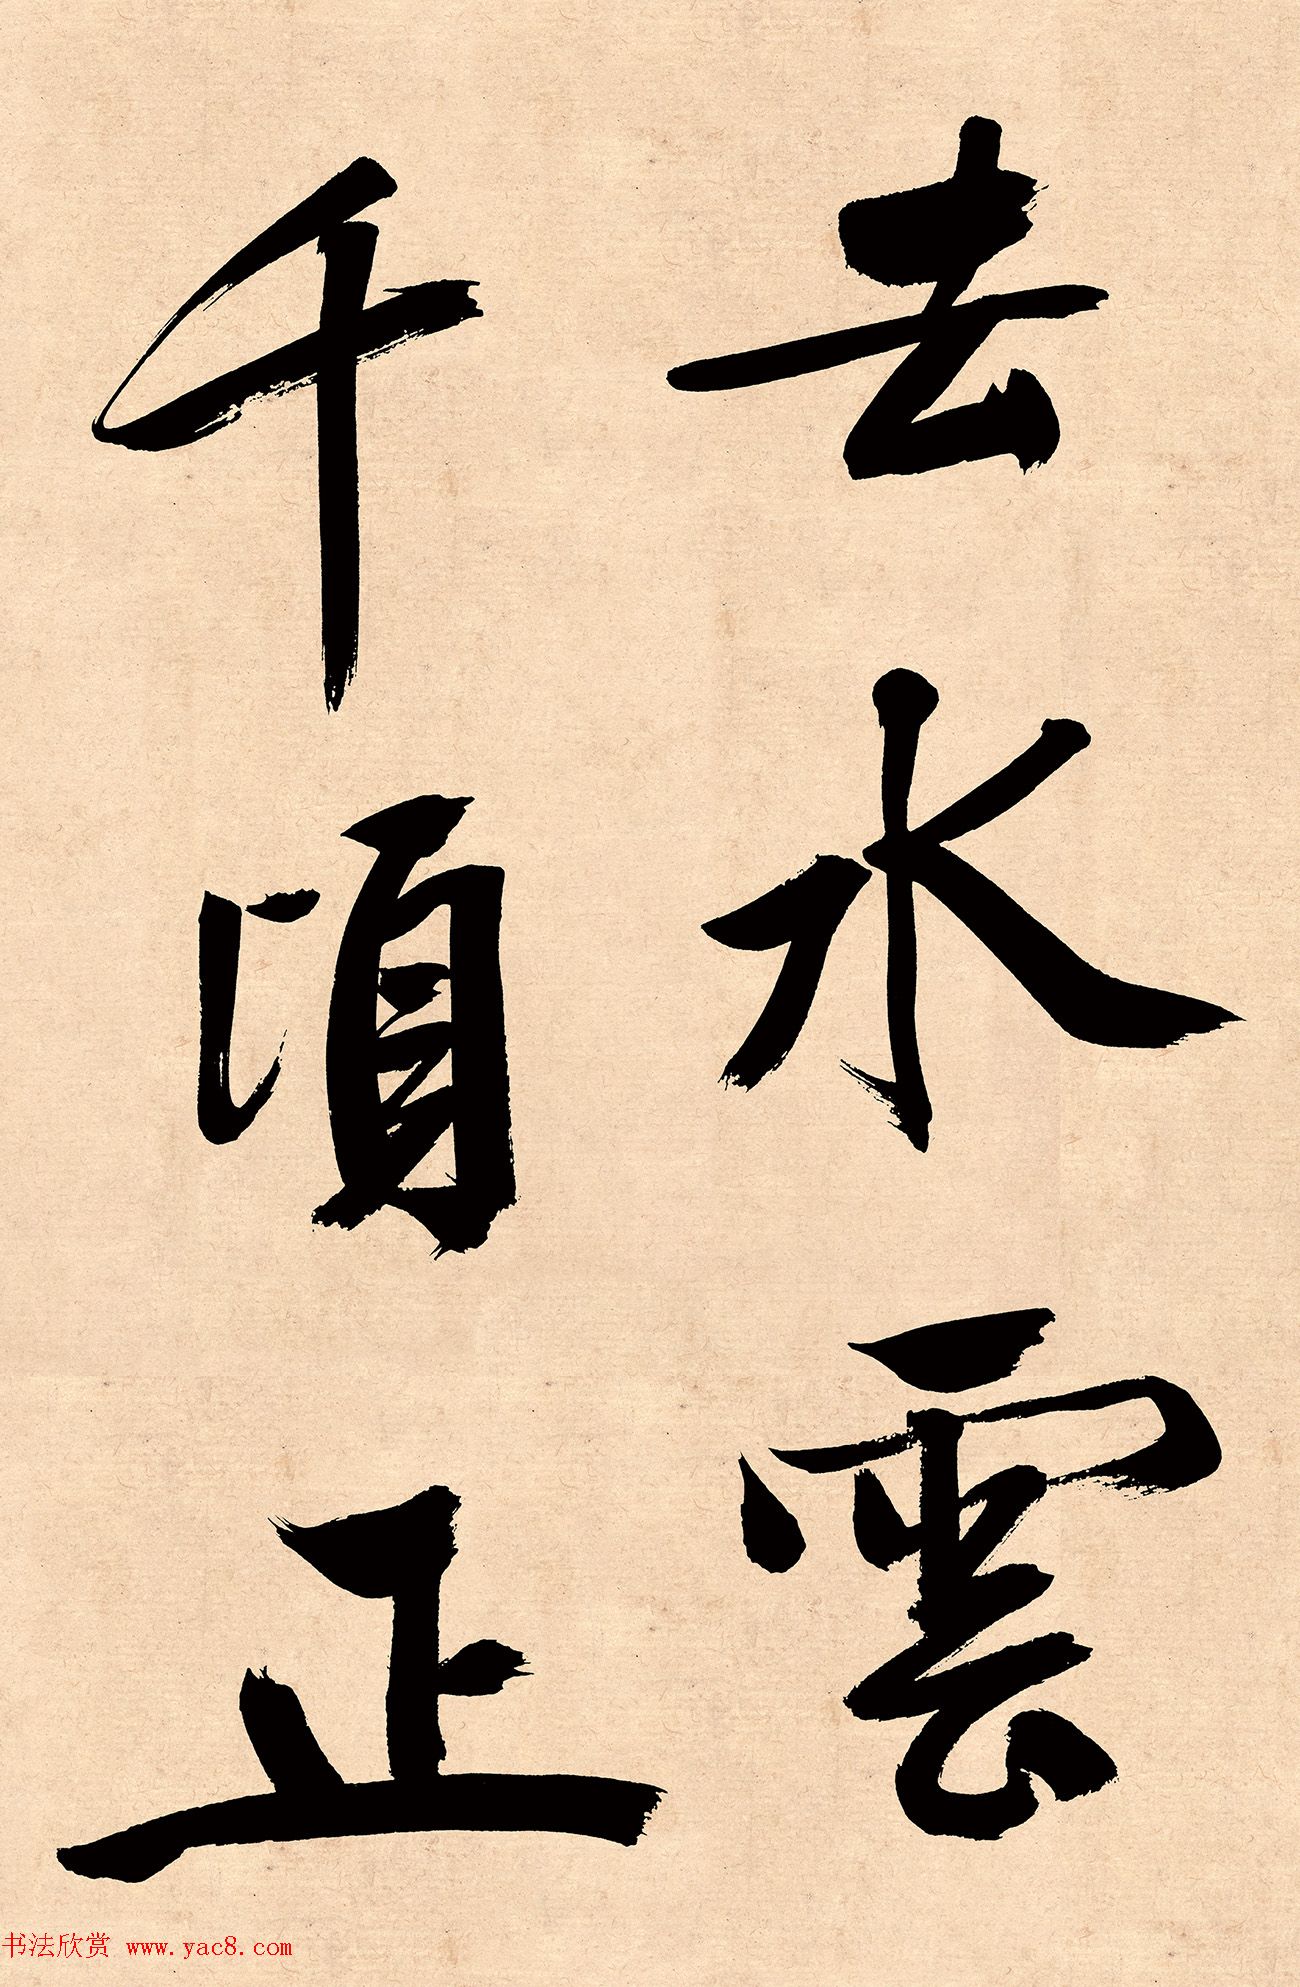 去水雲
千頃正
书法欣赏 www.yac8.com